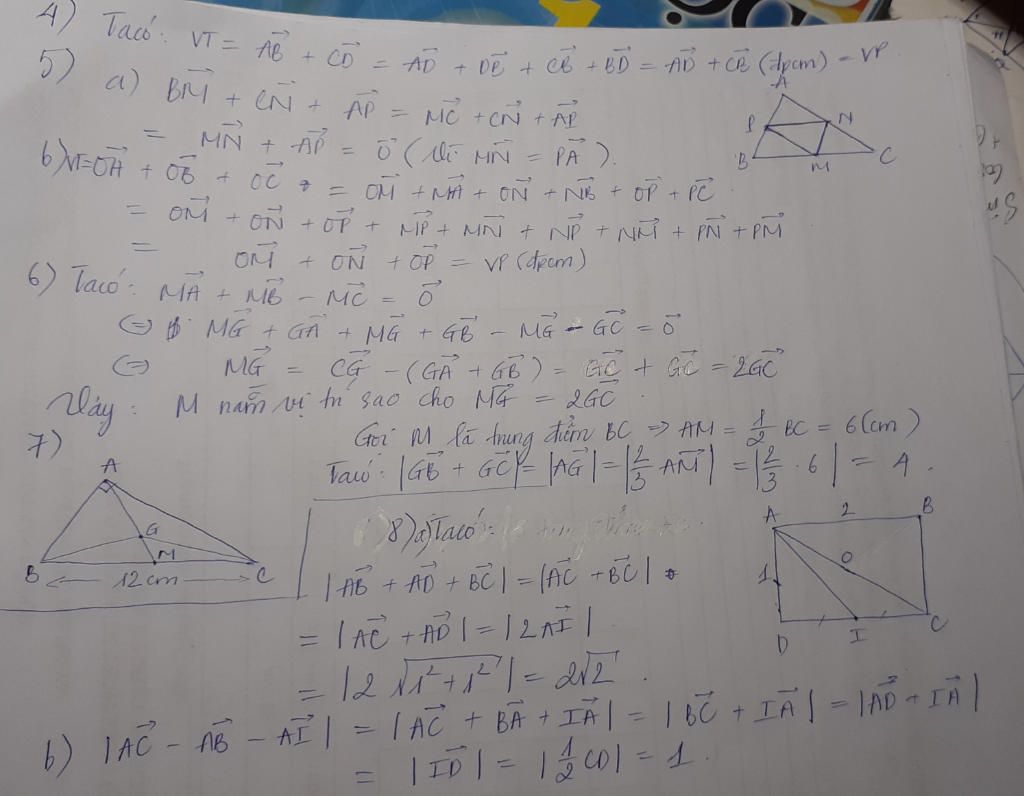 4) Ta có: VT = AB→ + CD→ = AD→ + DB→ + CB→ + BD→ = AD→ + CB→ (đpcm) = VP
5)
a) BM→ + CN→ + AP→ = MC→ + CN→ + AP→
= MN→ + AP→ = 0→ (Vì MN→ = PA→).
A
P N
B M C
b) VT= OA→ + OB→ + OC→ = OM→ + MA→ + ON→ + NB→ + OP→ + PC→
= OM→ + ON→ + OP→ + MP→ + MN→ + NP→ + NM→ + PN→ + PM→
= OM→ + ON→ + OP→ = VP (đpcm)
6) Ta có: MA→ + MB→ - MC→ = 0→
<=> MG→ + GA→ + MG→ + GB→ - MG→ - GC→ = 0→
<=> MG→ = CG→ - (GA→ + GB→) = GC→ + GC→ = 2GC→
Vậy: M nằm vị trí sao cho MG→ = 2GC→.
7)
Gọi M là trung điểm BC => AM = 1/2 BC = 6(cm)
Ta có: |GB→ + GC→| = |AG→| = |2/3 AM→| = |2/3 . 6| = 4.
A
G
B M C
12cm
8) a) Ta có:
|AB→ + AD→ + BC→| = |AC→ + BC→|
= |AC→ + AD→| = |2AI→|
= |2√(1² + 1²)| = 2√2.
A 2 B
O
1
D I C
b) |AC→ - AB→ - AI→| = |AC→ + BA→ + IA→| = |BC→ + IA→| = |AD→ + IA→|
= |ID→| = |1/2 CD| = 1.